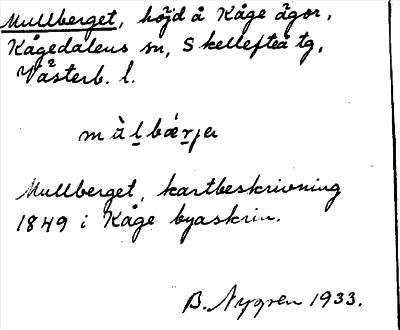 Mullberget, höjd å Kåge ägor,
Kågedalens sn, Skellefteå tg,
Västerb. l.
Mullberget, kartbeskrivning
1849 i Kåge byaskrin.
B. Nygren 1933.